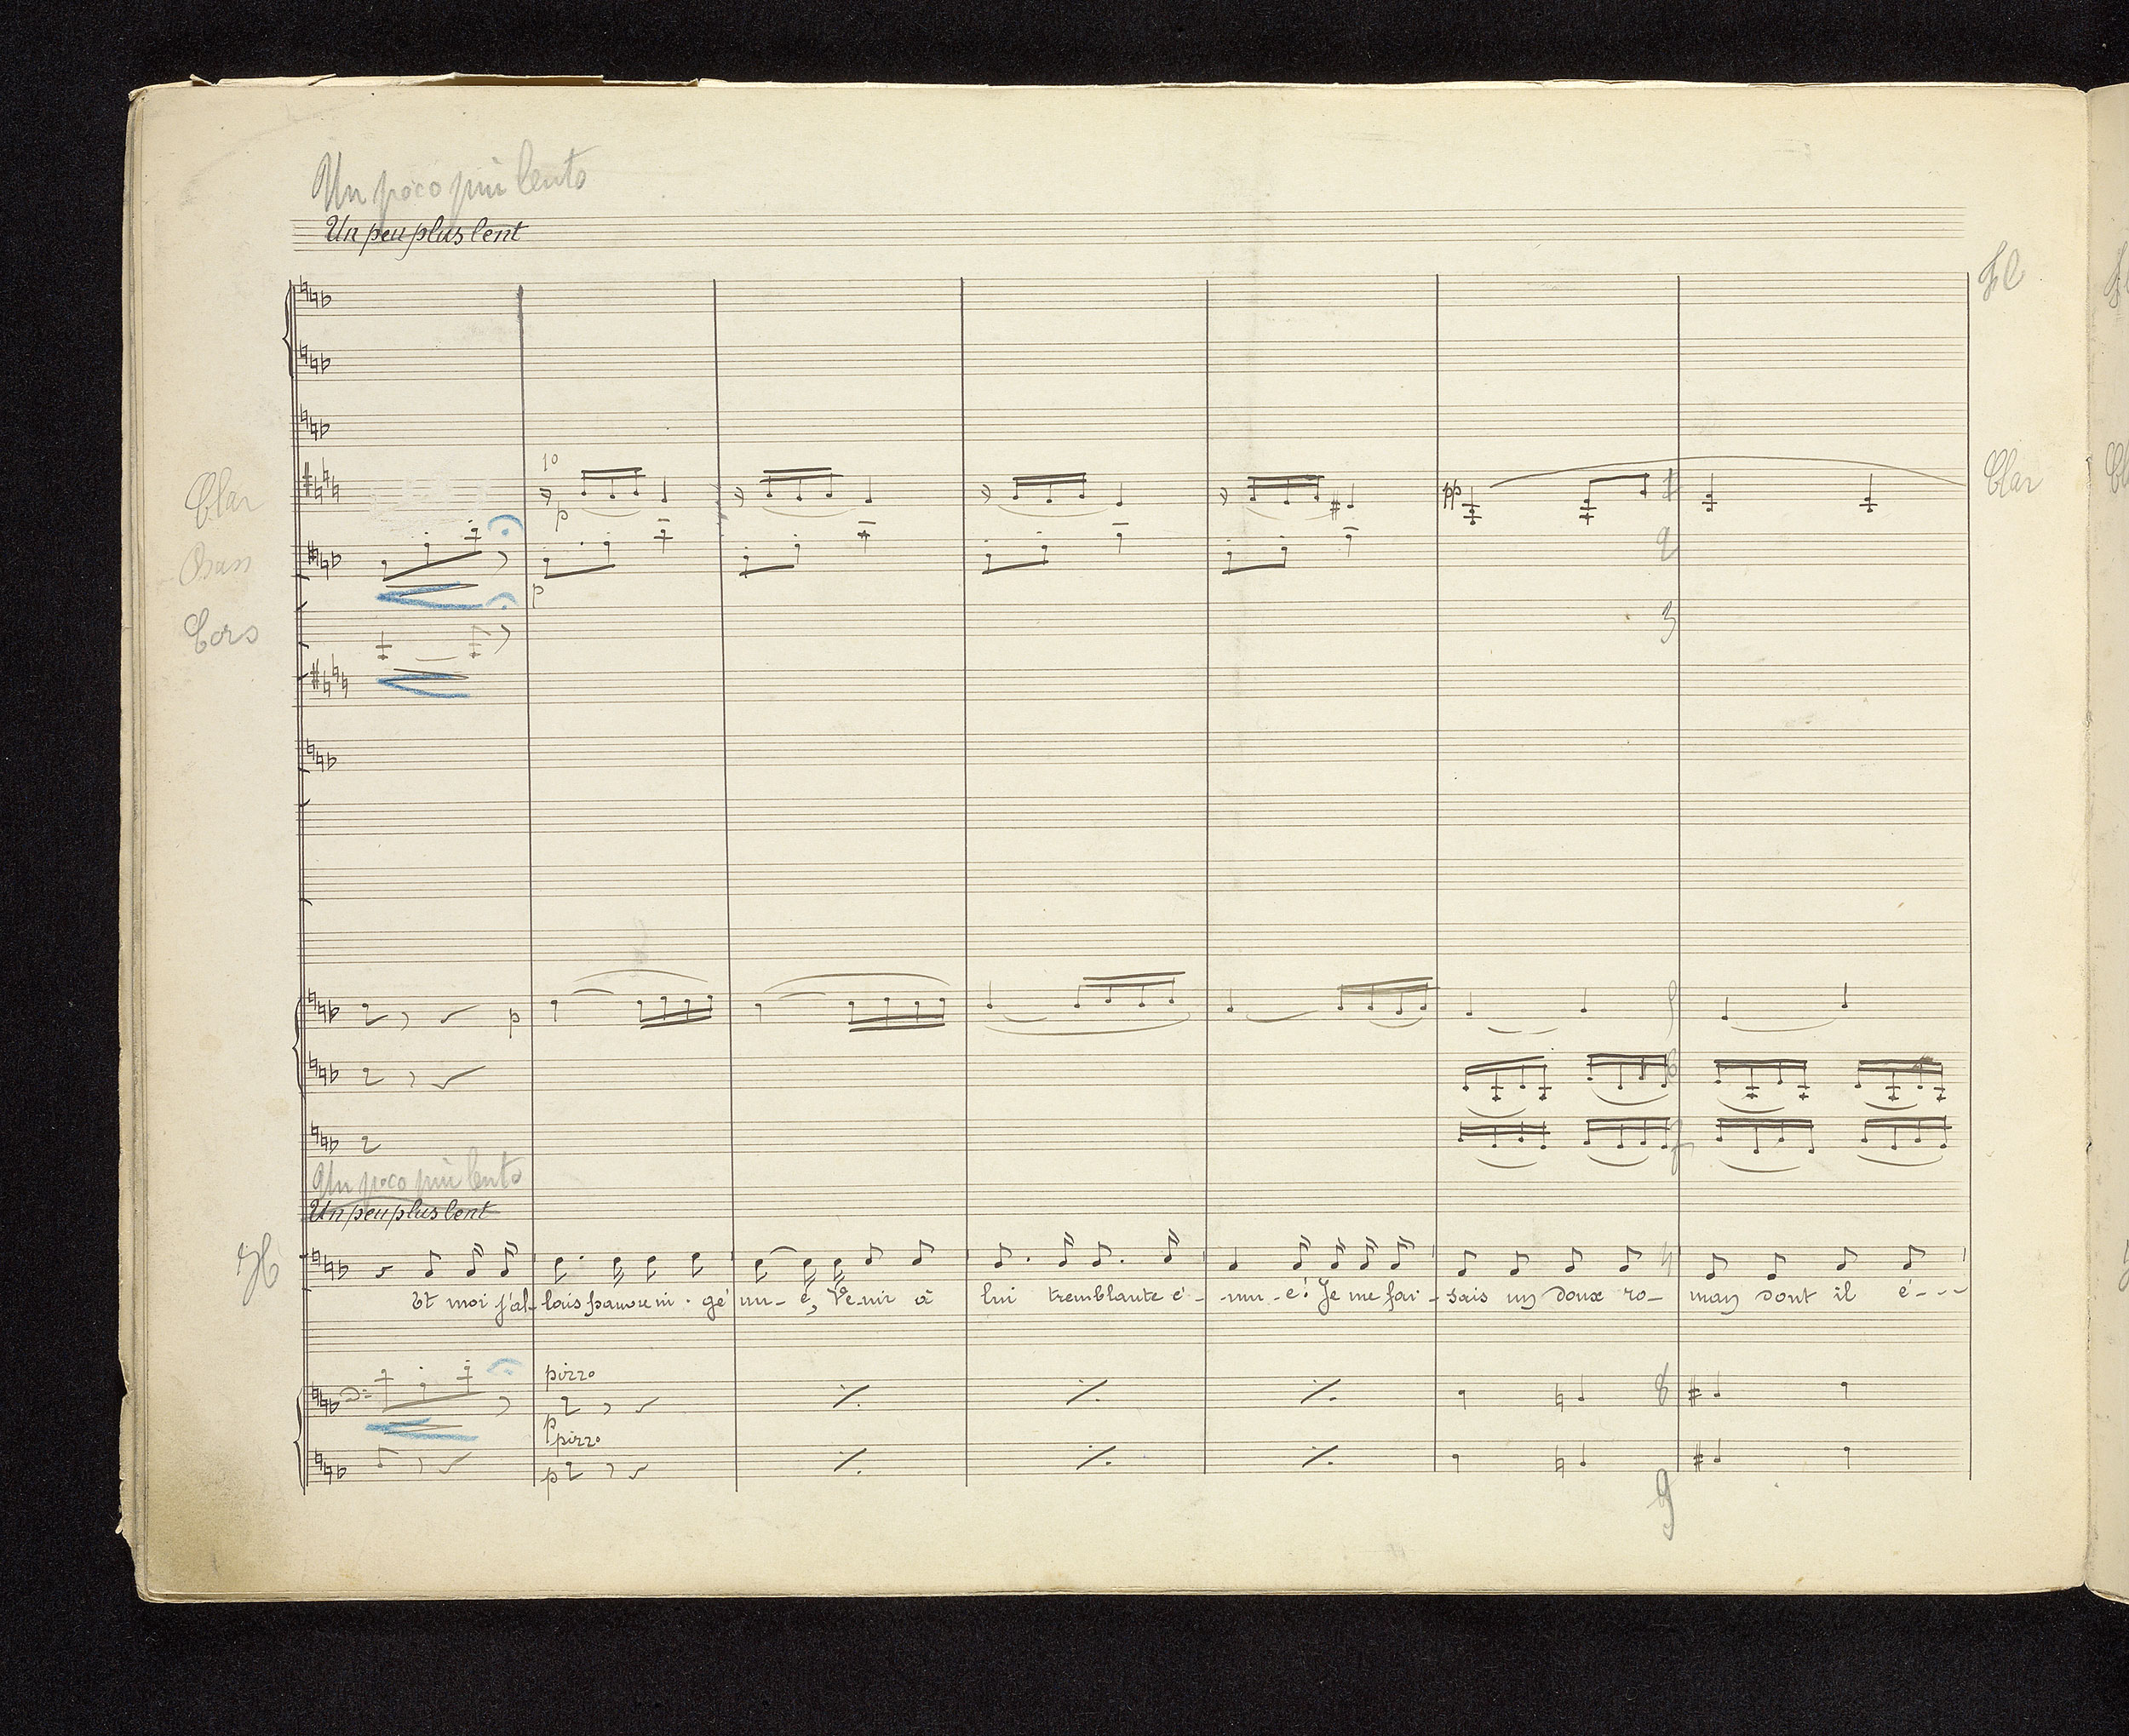 Un poco più lento
Un peu plus lent
Fl
Clar
1º
pp
1
Clar
p
2
p
Cors
3
p
5
6
7
Un poco più lento
Un peu plus lent
H
4
Et moi j'al- lais pauvre in- gé nu- e, Ve-nir à lui tremblante é- -mu-e! Je me fai- sais un doux ro- man dont il é- - -
pizzo
8
p
pizzo
p
9